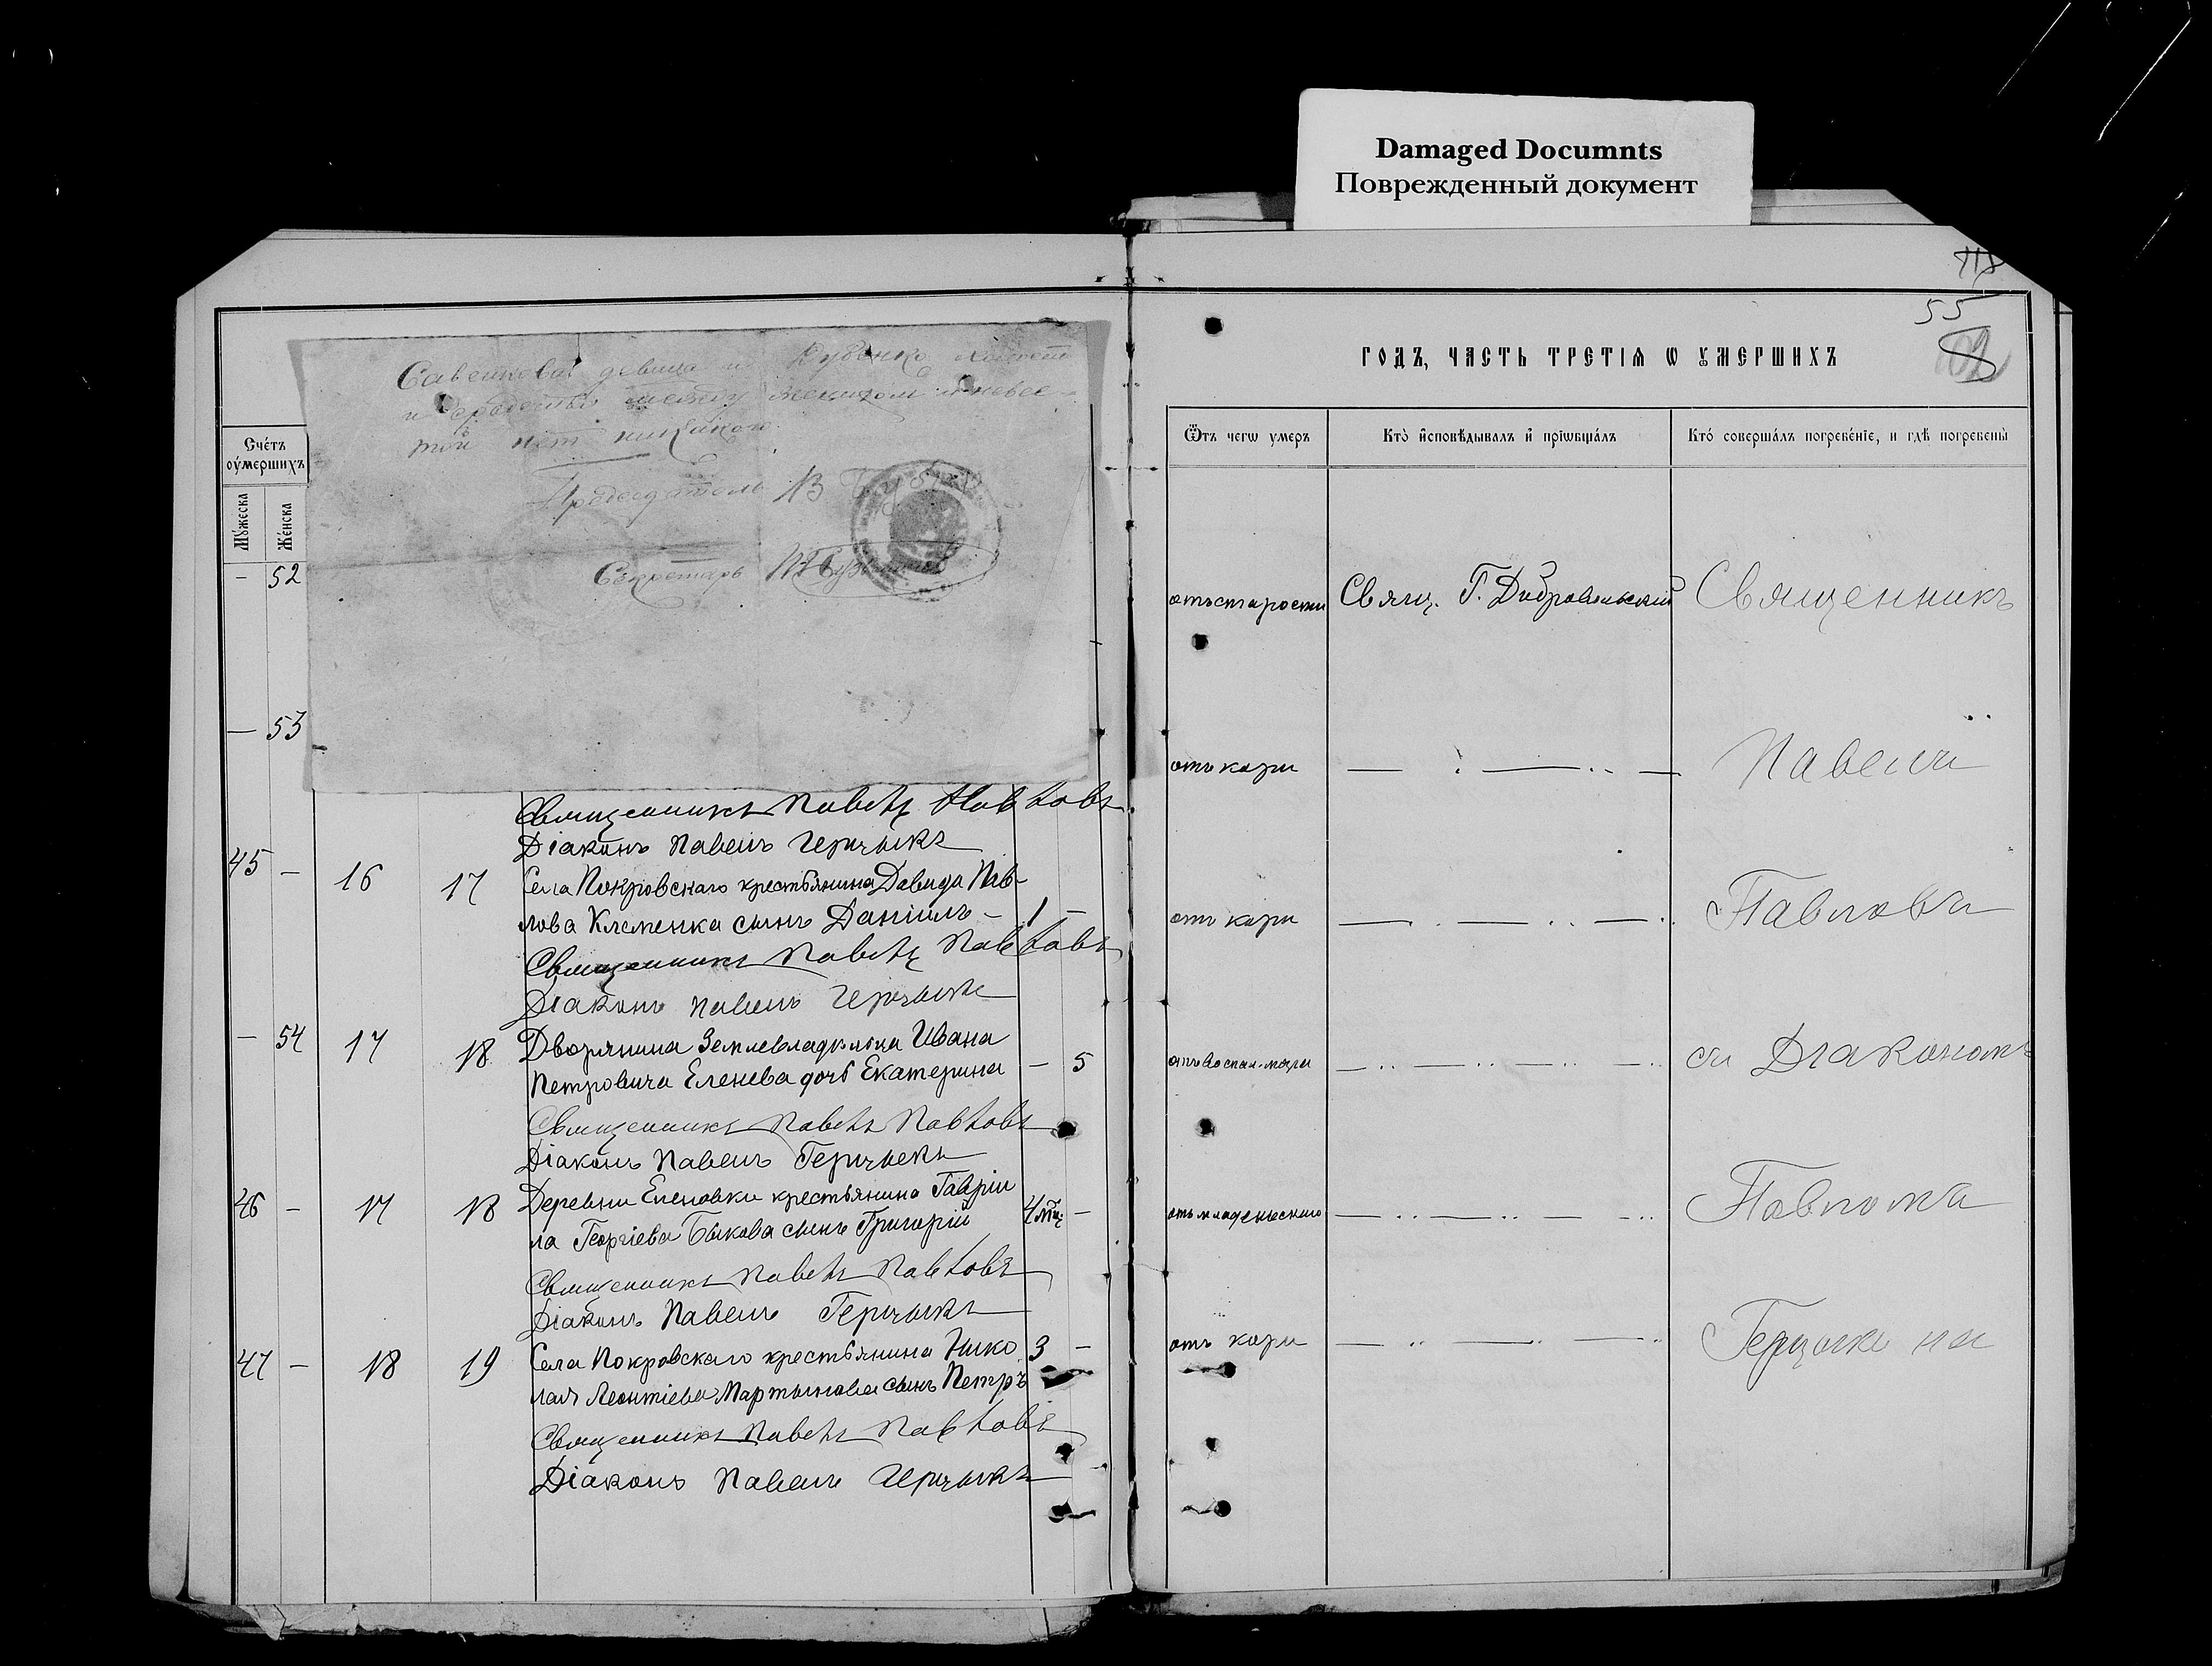 Damaged Documnts
Поврежденный документ
118
55
Савенкова девица и Дубенко холост
и сродства между женихом и невес-
той нет никакого.
Председатель
Секретарь
Счетъ
оумершихъ
Мужеска
Женска
- 52
— 53
Священникъ Павелъ Павловъ
Діаконъ Павелъ Герцыкъ
45 - 16 17 Села Покровскаго крестьянина Давида Пав-
лова Клеменка сынъ Даніилъ - 1 -
Священникъ Павелъ Павловъ
Діаконъ Павелъ Герцыкъ
- 54 17 18 Дворянина Землевладѣльца Ивана
Петровича Еленева дочь Екатерина - 5
Священникъ Павелъ Павловъ
Діаконъ Павелъ Герцыкъ
46 - 17 18 Деревни Еленовки крестьянина Гавріи
ла Георгіева Быкова сынъ Григорій 4 мц -
Священникъ Павелъ Павловъ
Діаконъ Павелъ Герцыкъ
47 - 18 19 Села Покровскаго крестьянина Нико 3 -
лая Леонтіева Мартынова сынъ Петръ
Священникъ Павелъ Павловъ
Діаконъ Павелъ Герцыкъ
ГОДЪ, ЧАСТЬ ТРЕТІЯ Ѡ ОУМЕРШИХЪ
Ѿтъ чегѡ умеръ
Кто исповѣдывалъ и пріѡбщалъ
Кто совершалъ погребеніе, и гдѣ погребены
отъ старости Свящ. Г. Добровольскій Священникъ
отъ кори Павелъ
отъ кори Павловъ
отъ воспал. мозга съ Діакономъ
отъ младенческаго Павломъ
отъ кори Герцыкъ на